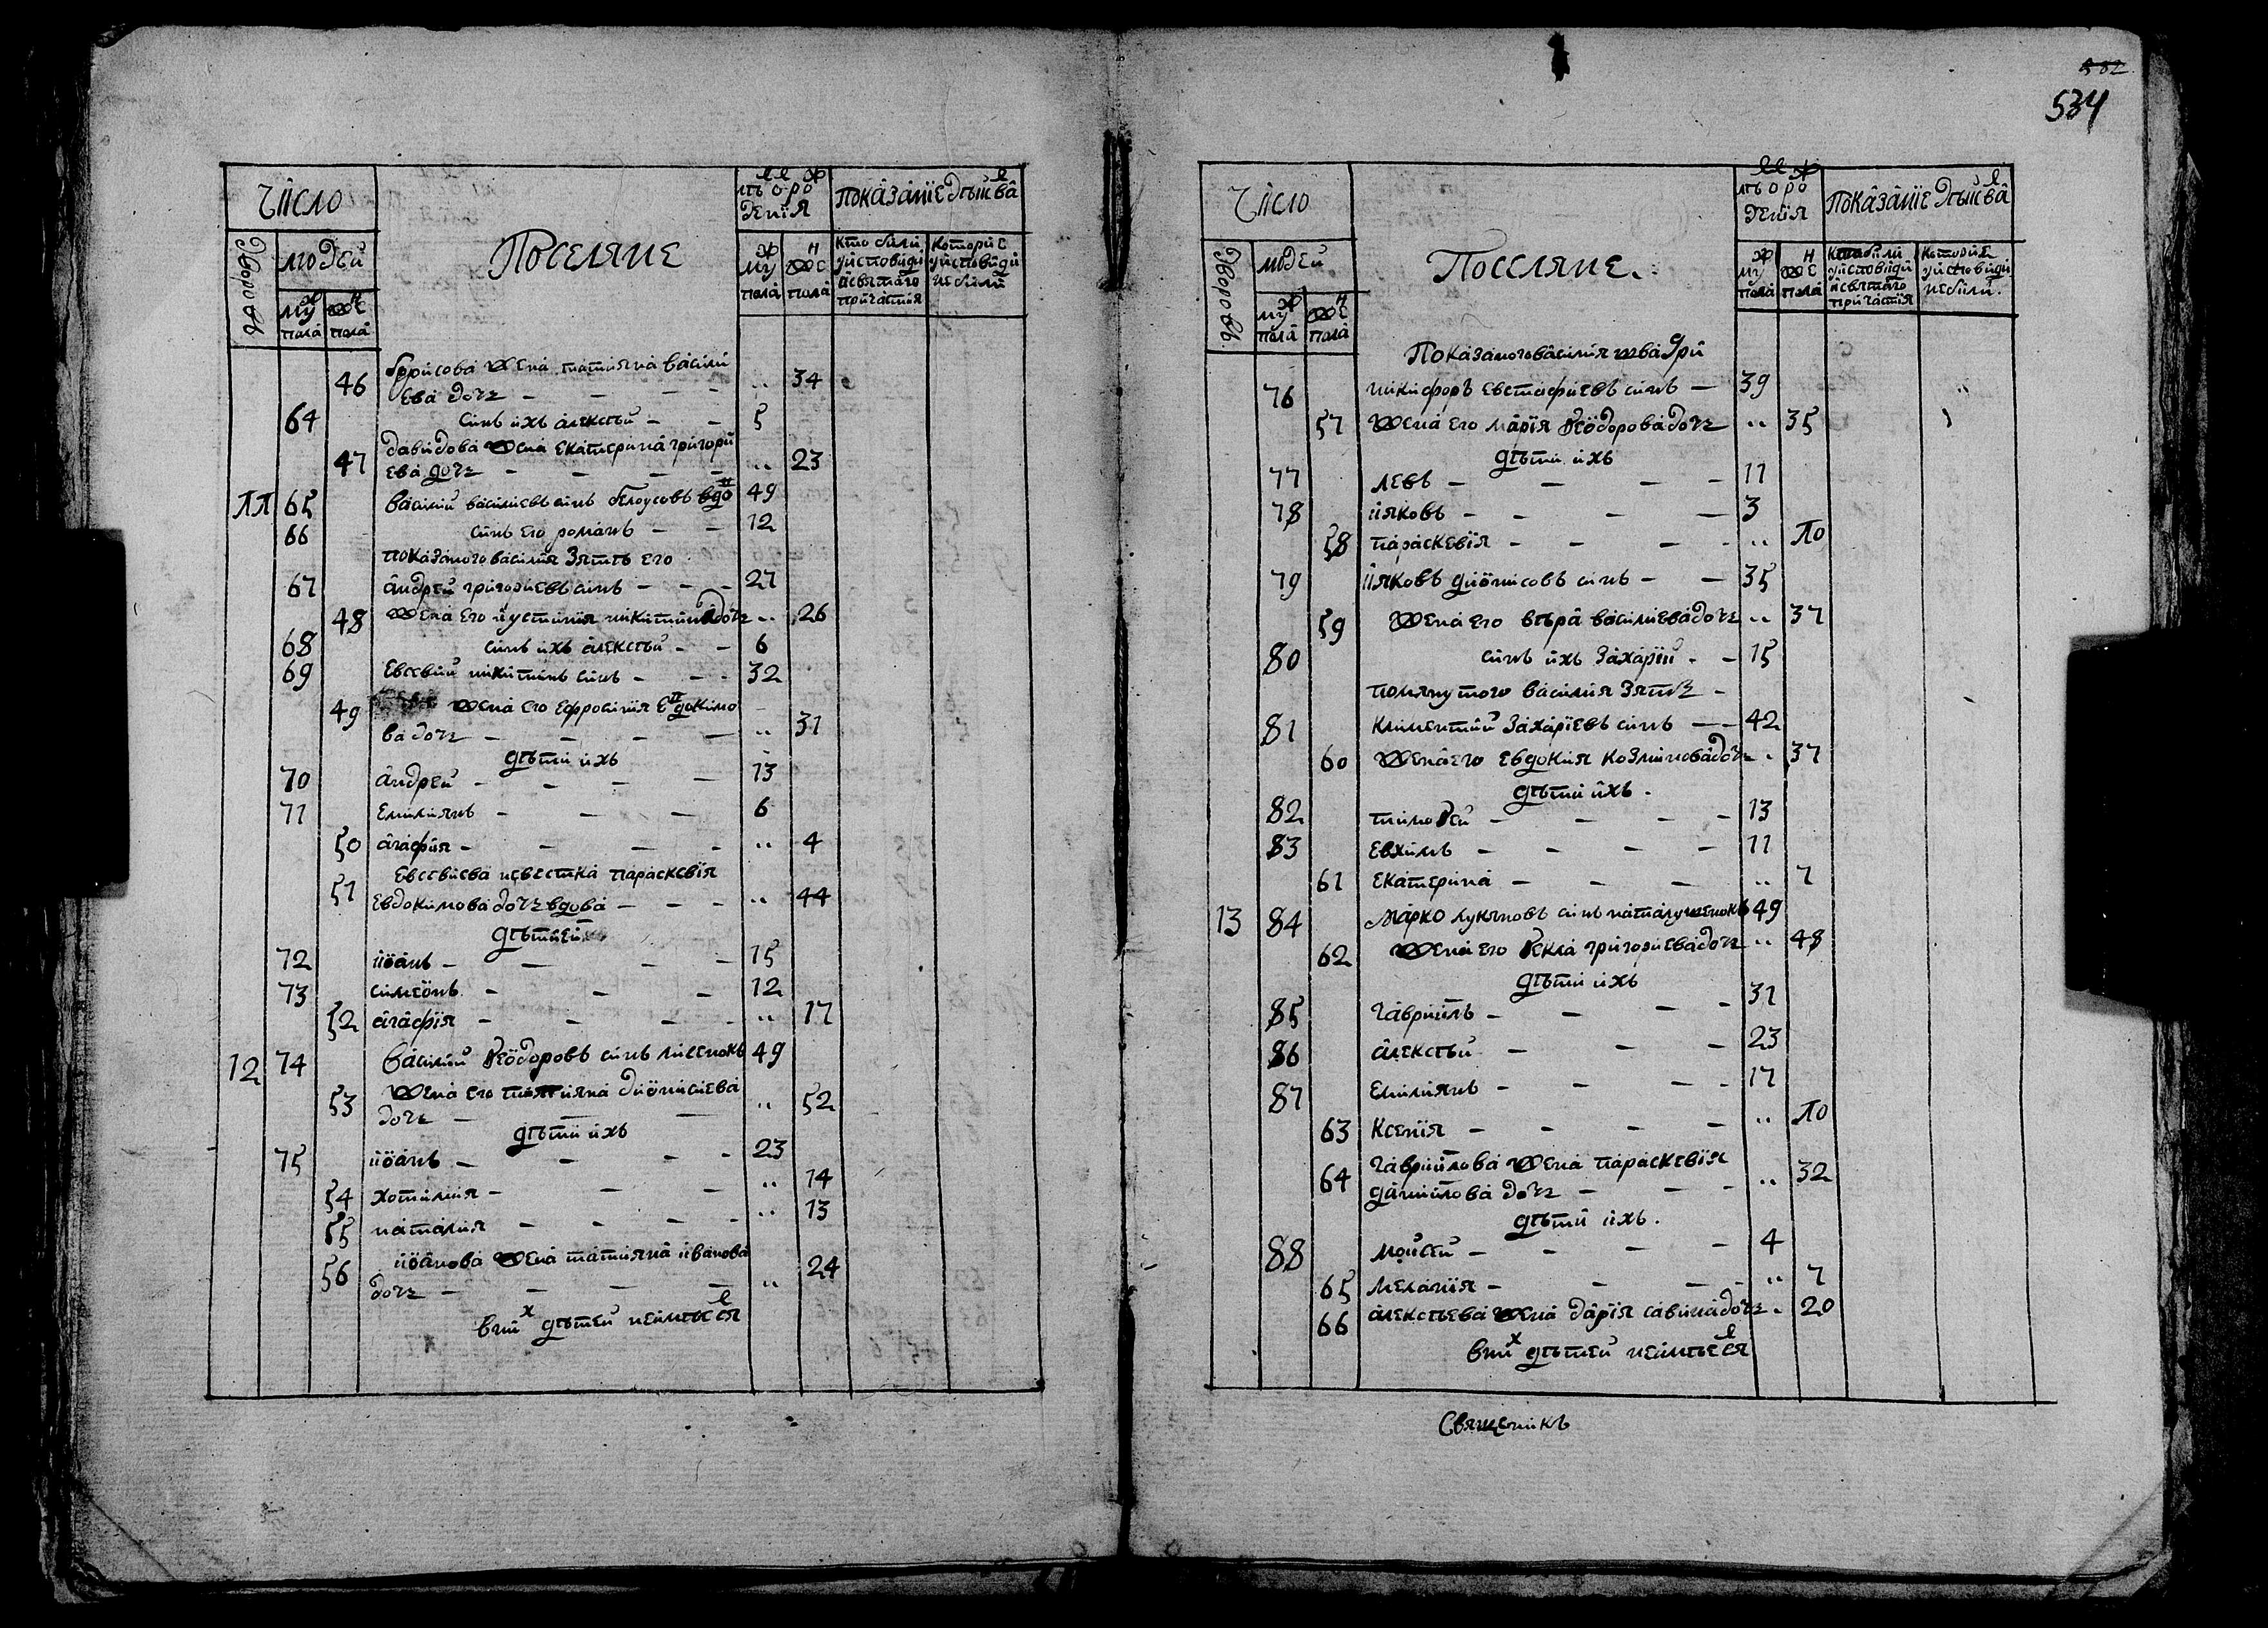 число
дворовъ
людей
муж пола
жен пола
Поселяне
лѣ о ро
женїя
муж пола
жен пола
показанїе дѣйсва
кто били уисповиди исвятаго причастия
которие уисповиди небили
46 борисова жена татияна васили
ева дочъ - - - - .. 34
64 синъ ихъ алексѣй - - 5
47 давидова жена екатерина григори
ева дочъ - - - - .. 23
11 65 василий василиевъ синъ белоусовъ вдо 49
66 синъ его романъ - - 12
показаного василия зять его
67 андрей григориевъ синъ - - - 27
48 жена его иустиния никитина дочъ .. 26
68 синъ ихъ алексѣй - - 6
69 евсевий никитинъ синъ - - - 32
49 жена его ефросиния евдокимо
ва дочъ - - - - .. 31
дѣти ихъ
70 андрей - - - 13
71 емилиянъ - - - 6
50 агафия - - - - .. 4
51 евсевиева невестка параскевїя
евдокимова дочъ вдова - - - .. 44
дѣти ей
72 иоанъ - - - - 15
73 симеонъ - - - 12
52 агафїя - - - - .. 17
12 74 василий Ѳеодоровъ синъ лисенокъ 49
53 жена его татияна дионисиева
дочъ - - - .. 52
дѣти ихъ
75 иоанъ - - - 23
54 хотимия - - - .. 14
55 наталия - - - - .. 13
56 иоанова жена татияна иванова
дочъ - - - - .. 24
вних дѣтей неимѣелся
582
534
число
дворовъ
людей
муж пола
жен пола
Поселяне.
лѣ о ро
женїя
муж пола
жен пола
показанїе дѣйсва
кто били уисповиди исвятаго причастїя
которие уисповиди небили.
Показаного василия швагри
76 никифоръ евстафиевъ синъ - 39
57 жена его марїя Ѳеодорова дочъ .. 35
дѣти ихъ
77 левъ - - - - 11
78 ияковъ - - - - 3
58 параскевїя - - - - .. 10
79 ияковъ дионисовъ синъ - - 35
59 жена его вѣра василиева дочъ .. 37
80 синъ ихъ захарїй - - 15
помянутого василия зять -
81 климентий захарїевъ синъ - - 42
60 жена его евдокия козминова дочъ .. 37
дѣти ихъ.
82 тимоѲей - - - - 13
83 евхимъ - - - - 11
61 екатерина - - - .. 7
13 84 марко лукяновъ синъ наталушенокъ 49
62 жена его Ѳекла григориева дочъ .. 48
дѣти ихъ
85 гавриилъ - - - - 31
86 алексѣй - - - 23
87 емилиянъ - - - - 17
63 Ксенїя - - - - .. 10
64 гавриилова жена параскевїя
даниилова дочъ - - - .. 32
дѣти ихъ.
88 мойсей - - - - 4
65 меланїя - - - - .. 7
66 алексѣева жена дарїя савина дочъ .. 20
вних дѣтей неимѣелся
Священикъ